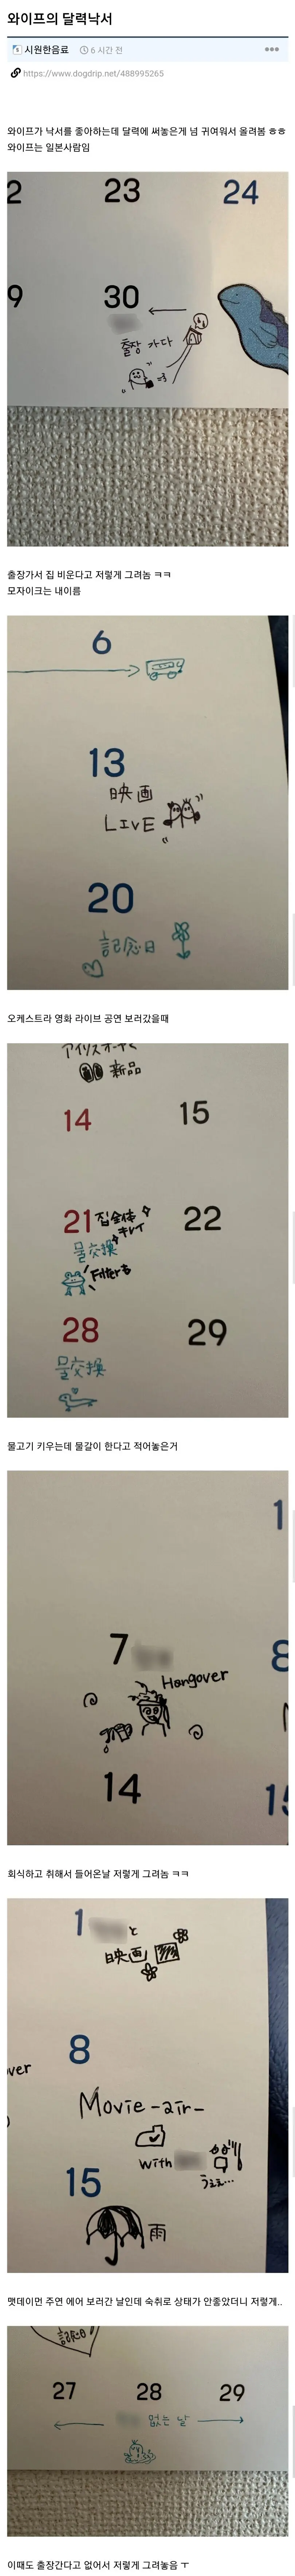 와이프의 달력낙서
시원한음료
6 시간 전
https://www.dogdrip.net/488995265
와이프가 낙서를 좋아하는데 달력에 써놓은게 넘 귀여워서 올려봄 ㅎㅎ
와이프는 일본사람임
2 23 24
9 30
출장 가다
출장가서 집 비운다고 저렇게 그려놈 ㅋㅋ
모자이크는 내이름
6
13
映画
LIVE
20
記念日
오케스트라 영화 라이브 공연 보러갔을때
新品
14 15
21 집全体 22
キレイ
물交換
Filterも
28 29
물交換
물고기 키우는데 물갈이 한다고 적어놓은거
1
7 8
Hangover
14 15
회식하고 취해서 들어온날 저렇게 그려놈 ㅋㅋ
1 と
映画
8
ver
Movie -air-
with
15 うぇぇ...
雨
맷데이먼 주연 에어 보러간 날인데 숙취로 상태가 안좋았더니 저렇게..
記念日
27 28 29
없는 날
이때도 출장간다고 없어서 저렇게 그려놓음 ㅜ